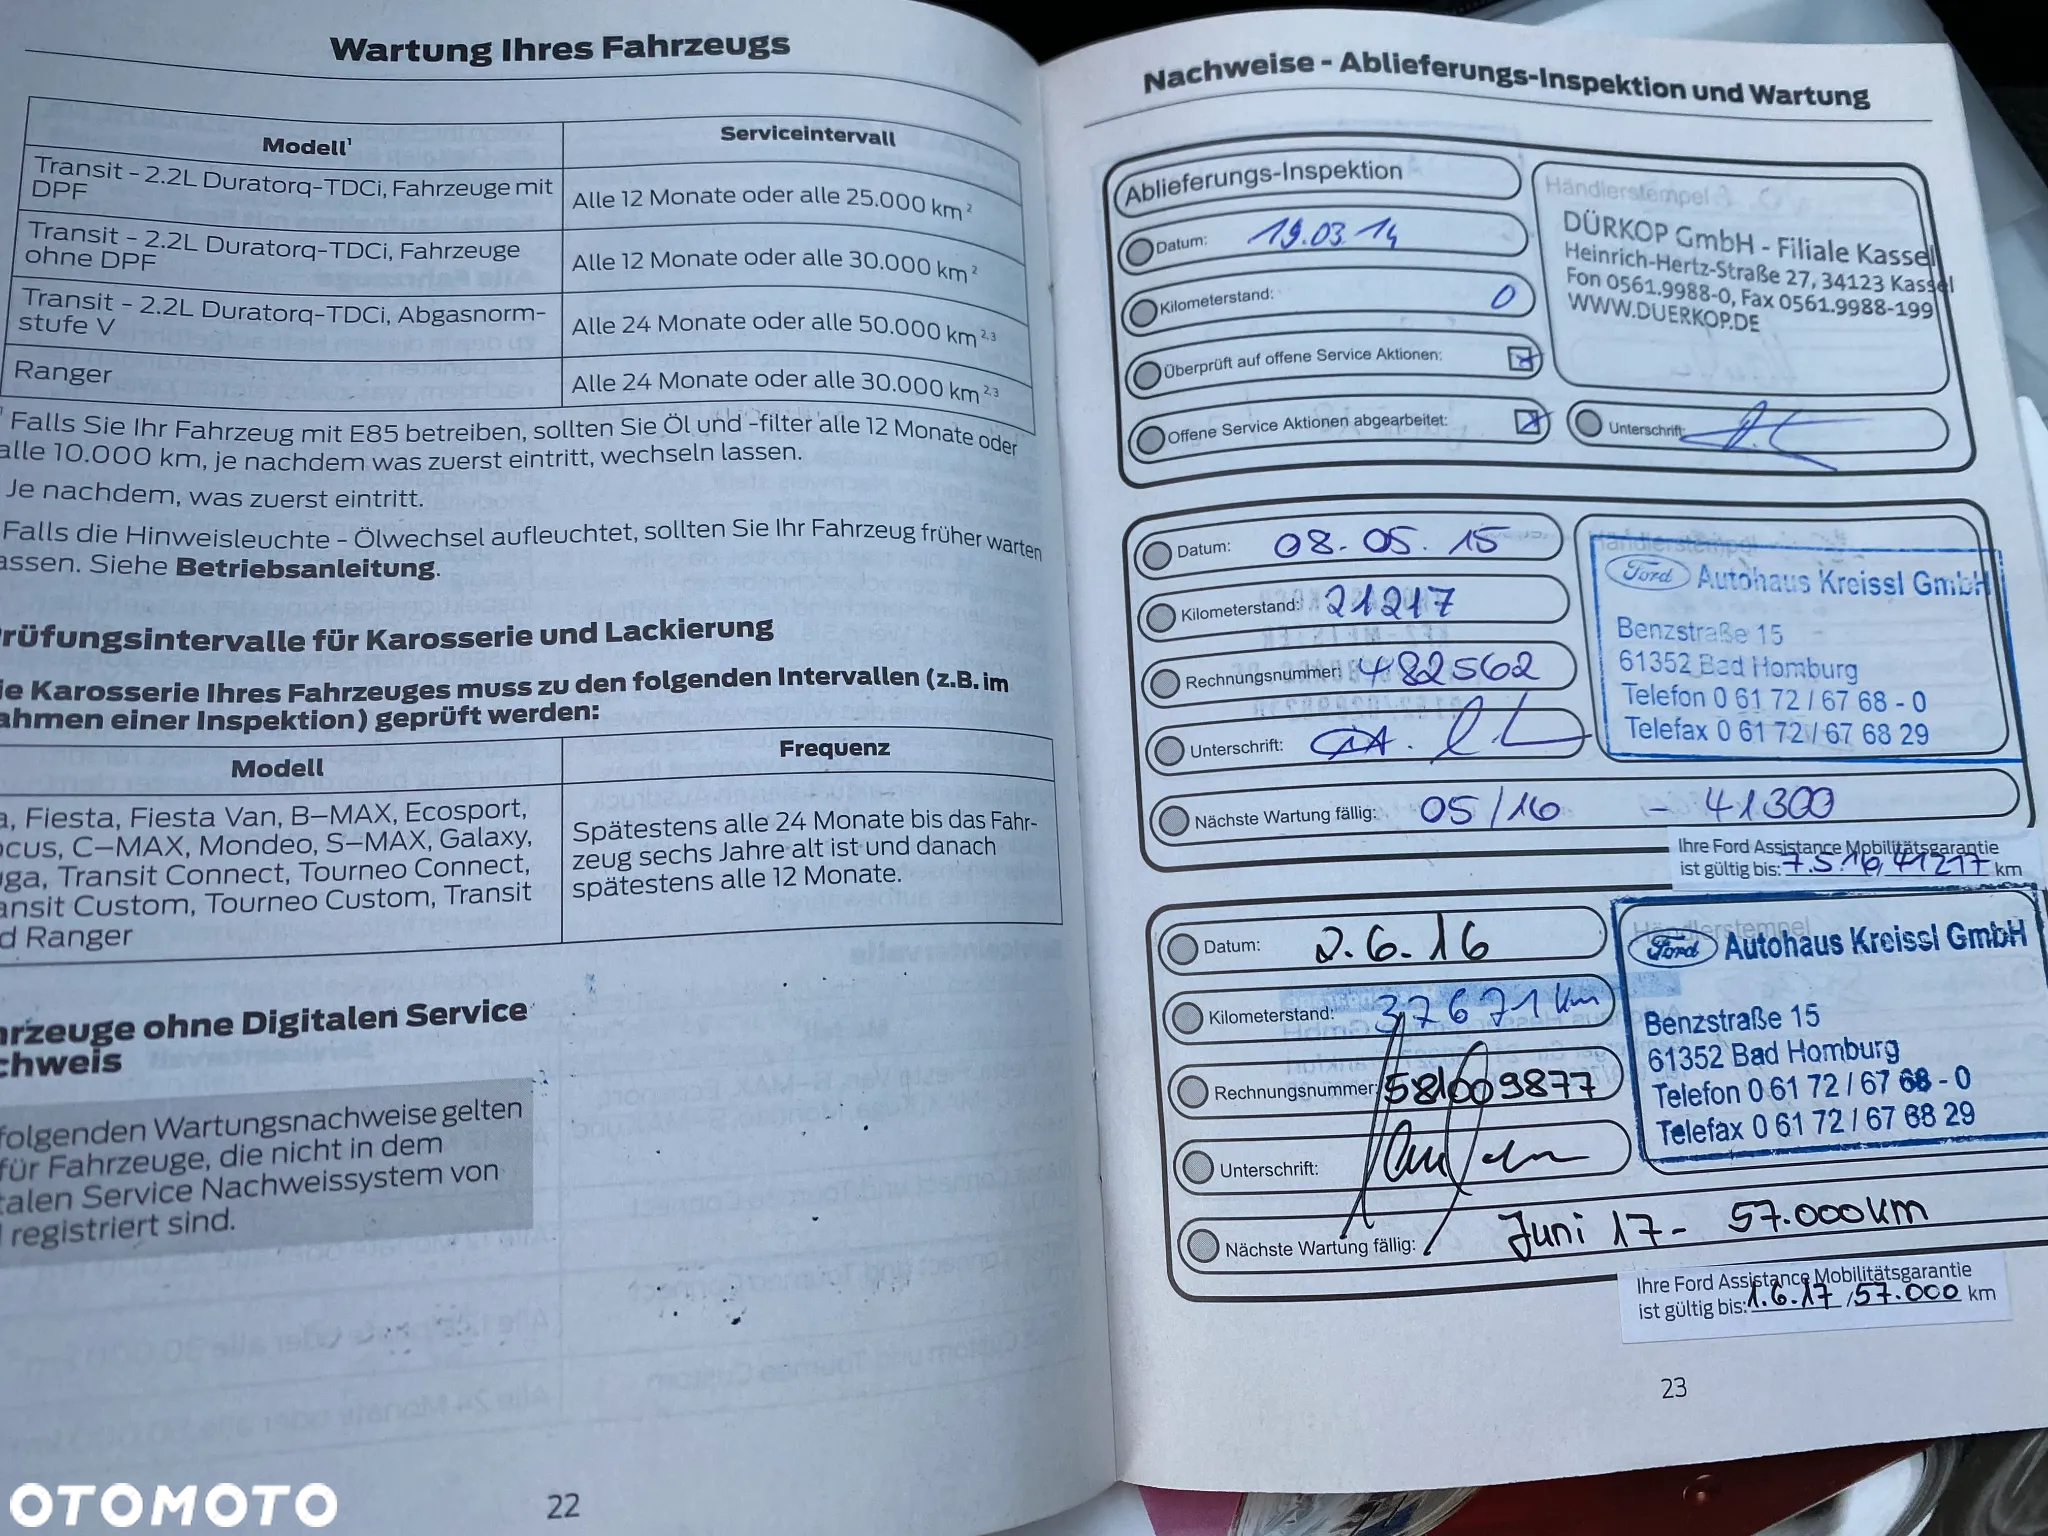 Wartung Ihres Fahrzeugs
Modell¹ Serviceintervall
Transit - 2.2L Duratorq-TDCi, Fahrzeuge mit
DPF
Alle 12 Monate oder alle 25.000 km ²
Transit - 2.2L Duratorq-TDCi, Fahrzeuge
ohne DPF
Alle 12 Monate oder alle 30.000 km ²
Transit - 2.2L Duratorq-TDCi, Abgasnorm-
stufe V
Alle 24 Monate oder alle 50.000 km ²·³
Ranger
Alle 24 Monate oder alle 30.000 km ²·³
¹ Falls Sie Ihr Fahrzeug mit E85 betreiben, sollten Sie Öl und -filter alle 12 Monate oder
alle 10.000 km, je nachdem was zuerst eintritt, wechseln lassen.
Je nachdem, was zuerst eintritt.
Falls die Hinweisleuchte - Ölwechsel aufleuchtet, sollten Sie Ihr Fahrzeug früher warten
assen. Siehe Betriebsanleitung.
rüfungsintervalle für Karosserie und Lackierung
ie Karosserie Ihres Fahrzeuges muss zu den folgenden Intervallen (z.B. im
ahmen einer Inspektion) geprüft werden:
Modell Frequenz
a, Fiesta, Fiesta Van, B-MAX, Ecosport,
ocus, C-MAX, Mondeo, S-MAX, Galaxy,
uga, Transit Connect, Tourneo Connect,
ansit Custom, Tourneo Custom, Transit
d Ranger
Spätestens alle 24 Monate bis das Fahr-
zeug sechs Jahre alt ist und danach
spätestens alle 12 Monate.
hrzeuge ohne Digitalen Service
chweis
folgenden Wartungsnachweise gelten
für Fahrzeuge, die nicht in dem
talen Service Nachweissystem von
registriert sind.
22
OTOMOTO
Nachweise - Ablieferungs-Inspektion und Wartung
Ablieferungs-Inspektion
Datum: 19.03.14
Kilometerstand: 0
Überprüft auf offene Service Aktionen:
Offene Service Aktionen abgearbeitet:
Händlerstempel
DÜRKOP GmbH - Filiale Kassel
Heinrich-Hertz-Straße 27, 34123 Kassel
Fon 0561.9988-0, Fax 0561.9988-199
WWW.DUERKOP.DE
Unterschrift:
Datum: 08.05.15
Kilometerstand: 21217
Rechnungsnummer: 482562
Unterschrift:
Nächste Wartung fällig: 05/16 - 41300
Händlerstempel
Ford Autohaus Kreissl GmbH
Benzstraße 15
61352 Bad Homburg
Telefon 0 61 72 / 67 68 - 0
Telefax 0 61 72 / 67 68 29
Ihre Ford Assistance Mobilitätsgarantie
ist gültig bis: 7.5.16, 41217 km
Datum: 2.6.16
Kilometerstand: 37671 km
Rechnungsnummer: 581009877
Unterschrift:
Nächste Wartung fällig: Juni 17 - 57.000km
Händlerstempel
Ford Autohaus Kreissl GmbH
Benzstraße 15
61352 Bad Homburg
Telefon 0 61 72 / 67 68 - 0
Telefax 0 61 72 / 67 68 29
Ihre Ford Assistance Mobilitätsgarantie
ist gültig bis: 1.6.17, 57.000 km
23